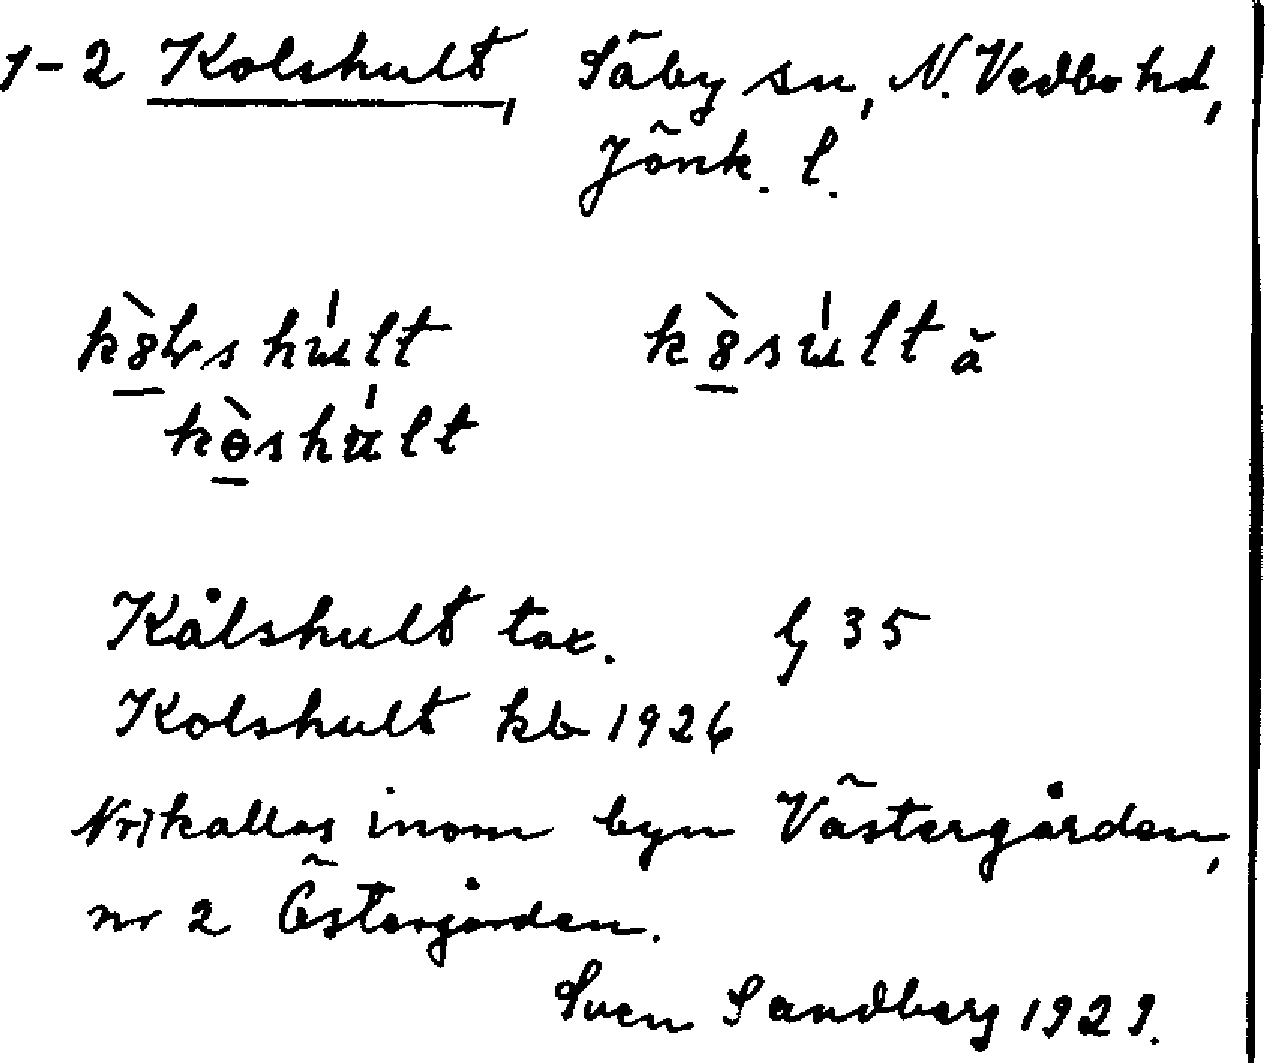 1-2 Kolshult, Säby sn, N. Vedbo hd,
Jönk. l.
Kålshult tax. G 35
Kolshult kb 1926
Nr 1 kallas inom byn Västergården,
nr 2 Östergården.
Sven Sandberg 1929.